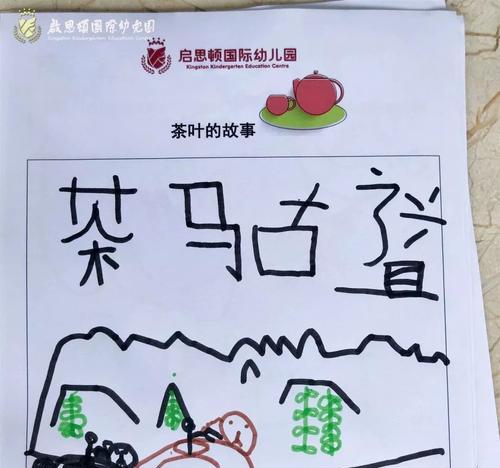 启思顿国际幼儿园
Kingston Kindergarten Education Centre
启思顿国际幼儿园
Kingston Kindergarten Education Centre
茶叶的故事
茶马古道